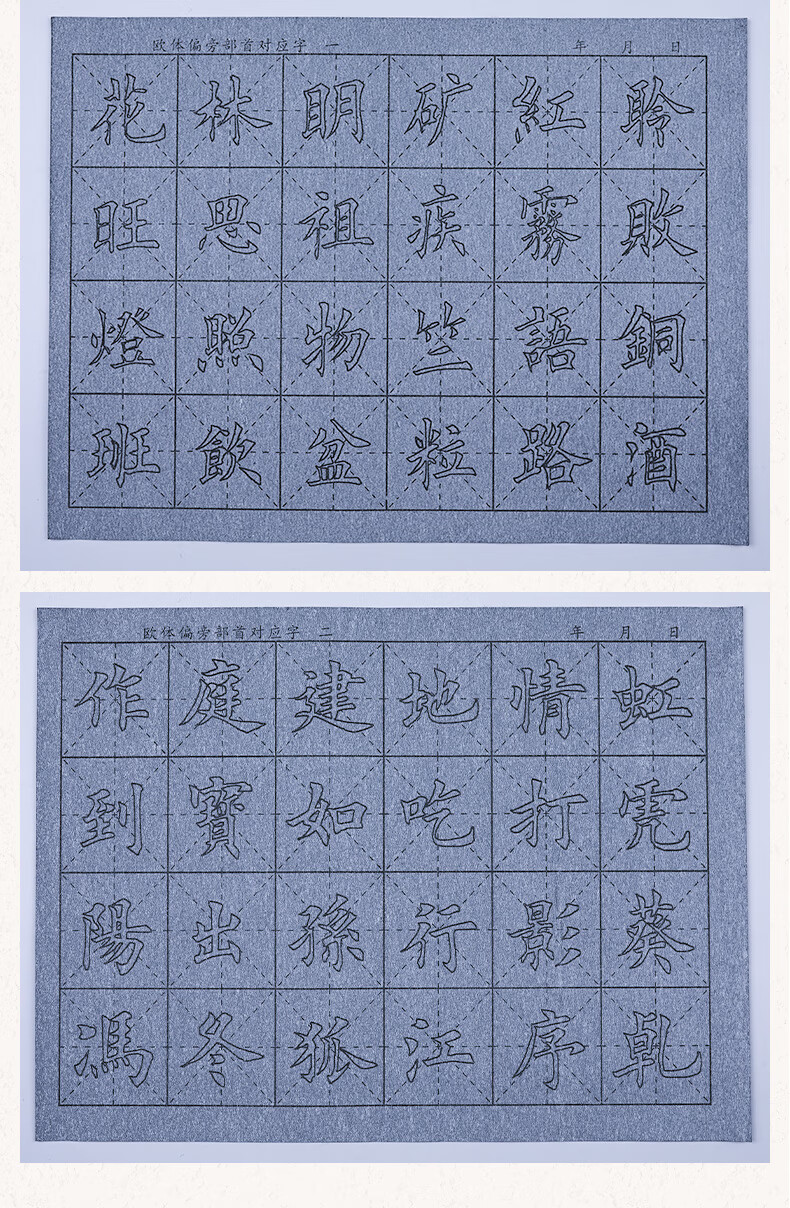 欧体偏旁部首对应字 一 年 月 日
花林明矿紅聆
旺思祖疾霧敗
燈照物竺語銅
班飲盆粒路酒
欧体偏旁部首对应字 二 年 月 日
作庭建地情虹
到寶如吃打
陽出孫行影葵
馮冬狐江序乹